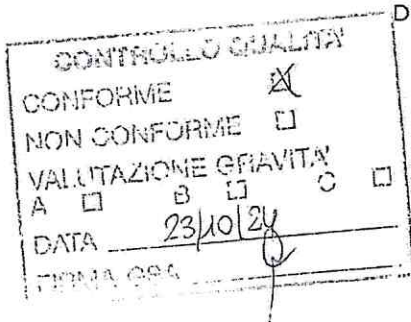 D
CONTROLLO QUALITA'
CONFORME ☒
NON CONFORME ☐
VALUTAZIONE GRAVITA'
A ☐ B ☐ C ☐
DATA 23/10/24
FIRMA